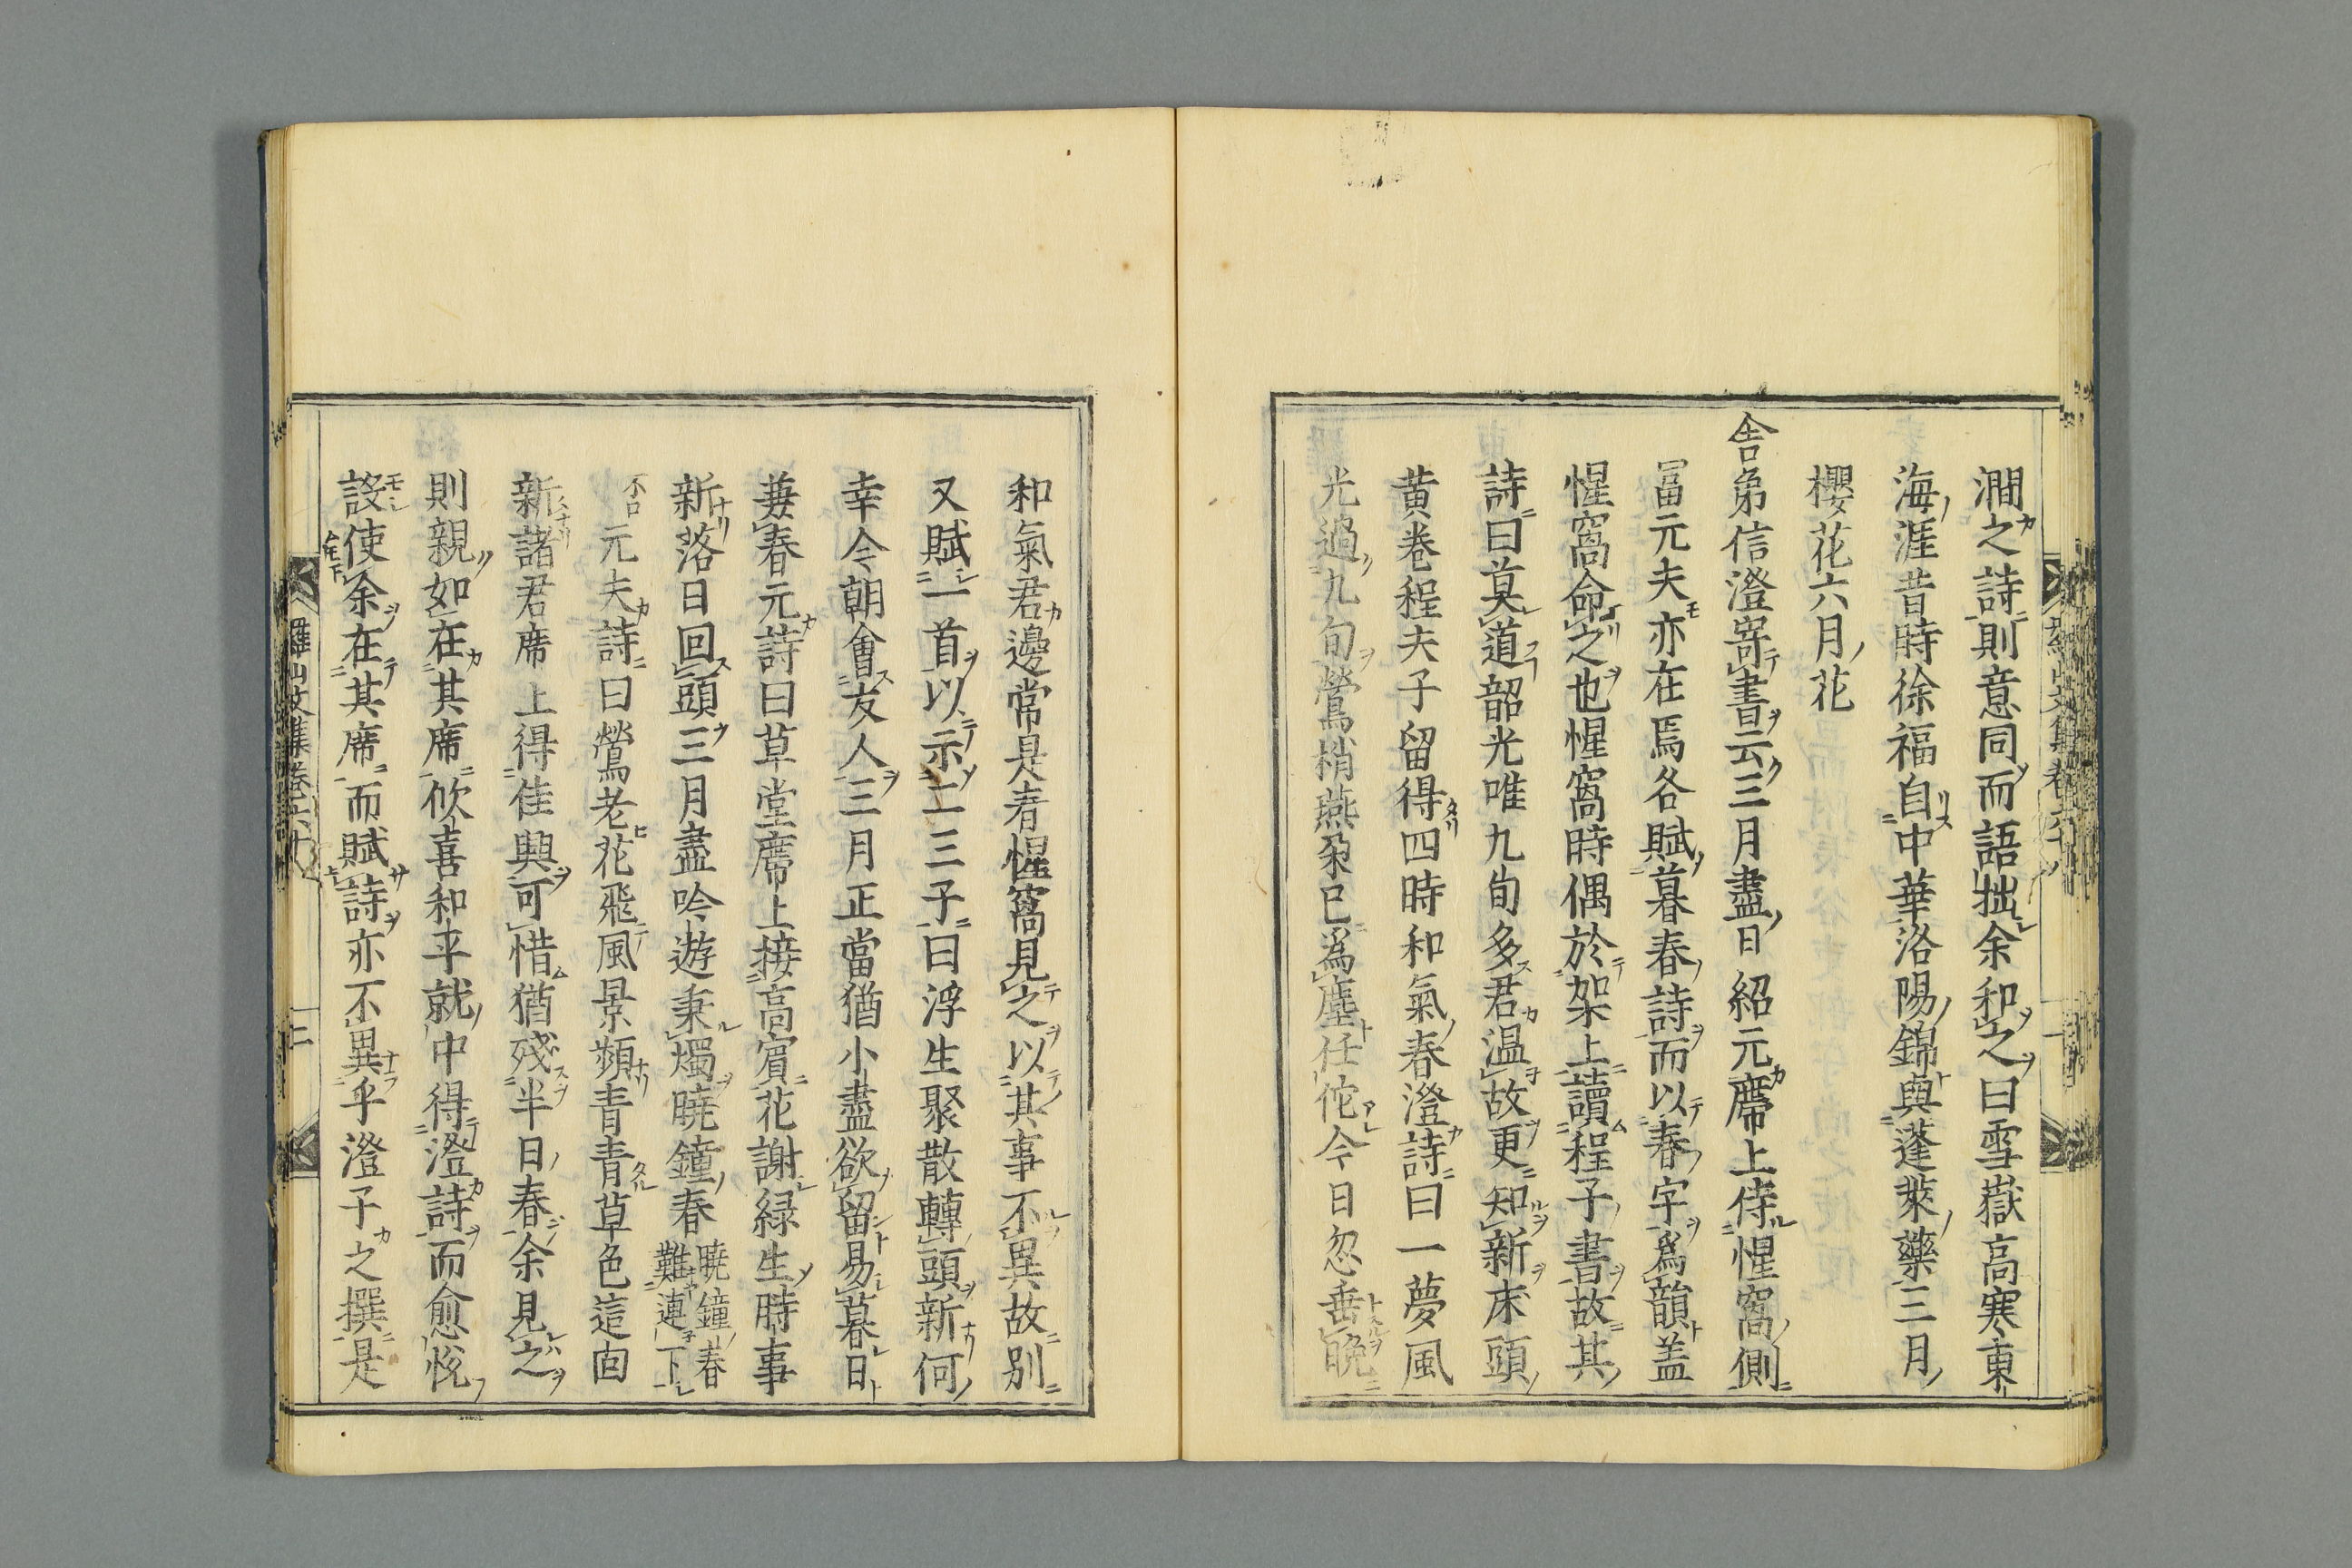 澗之詩則意同而語拙余和之曰雪嶽高寒東
海涯昔時徐福自中華洛陽錦與蓬萊藥三月
櫻花六月花
舎弟信澄寄書云三月盡日紹元席上侍惺窩側
冨元夫亦在焉各賦暮春詩而以春字爲韻盖
惺窩命之也惺窩時偶於架上讀程子書故其
詩曰莫道韶光唯九旬多君温故更知新床頭
黄巻程夫子留得四時和氣春澄詩曰一夢風
光過九旬鶯梢燕朶已爲塵任佗今日忽垂晩
和氣君邊常是春惺窩見之以其事不異故別
又賦一首以示二三子曰浮生聚散轉頭新何
幸今朝會友人三月正當猶小盡欲留易暮日
兼春元詩曰草堂席上接高賔花謝緑生時事
新落日回頭三月盡吟遊秉燭曉鐘春曉鐘春
難連下
不口元夫詩曰鶯老花飛風景頻青青草色這回
新諸君席上得佳興可惜猶殘半日春余見之
則親如在其席欣喜和乎就中得澄詩而愈悦
設使余在其席而賦詩亦不異乎澄子之撰是
羅山文集巻六十八
二